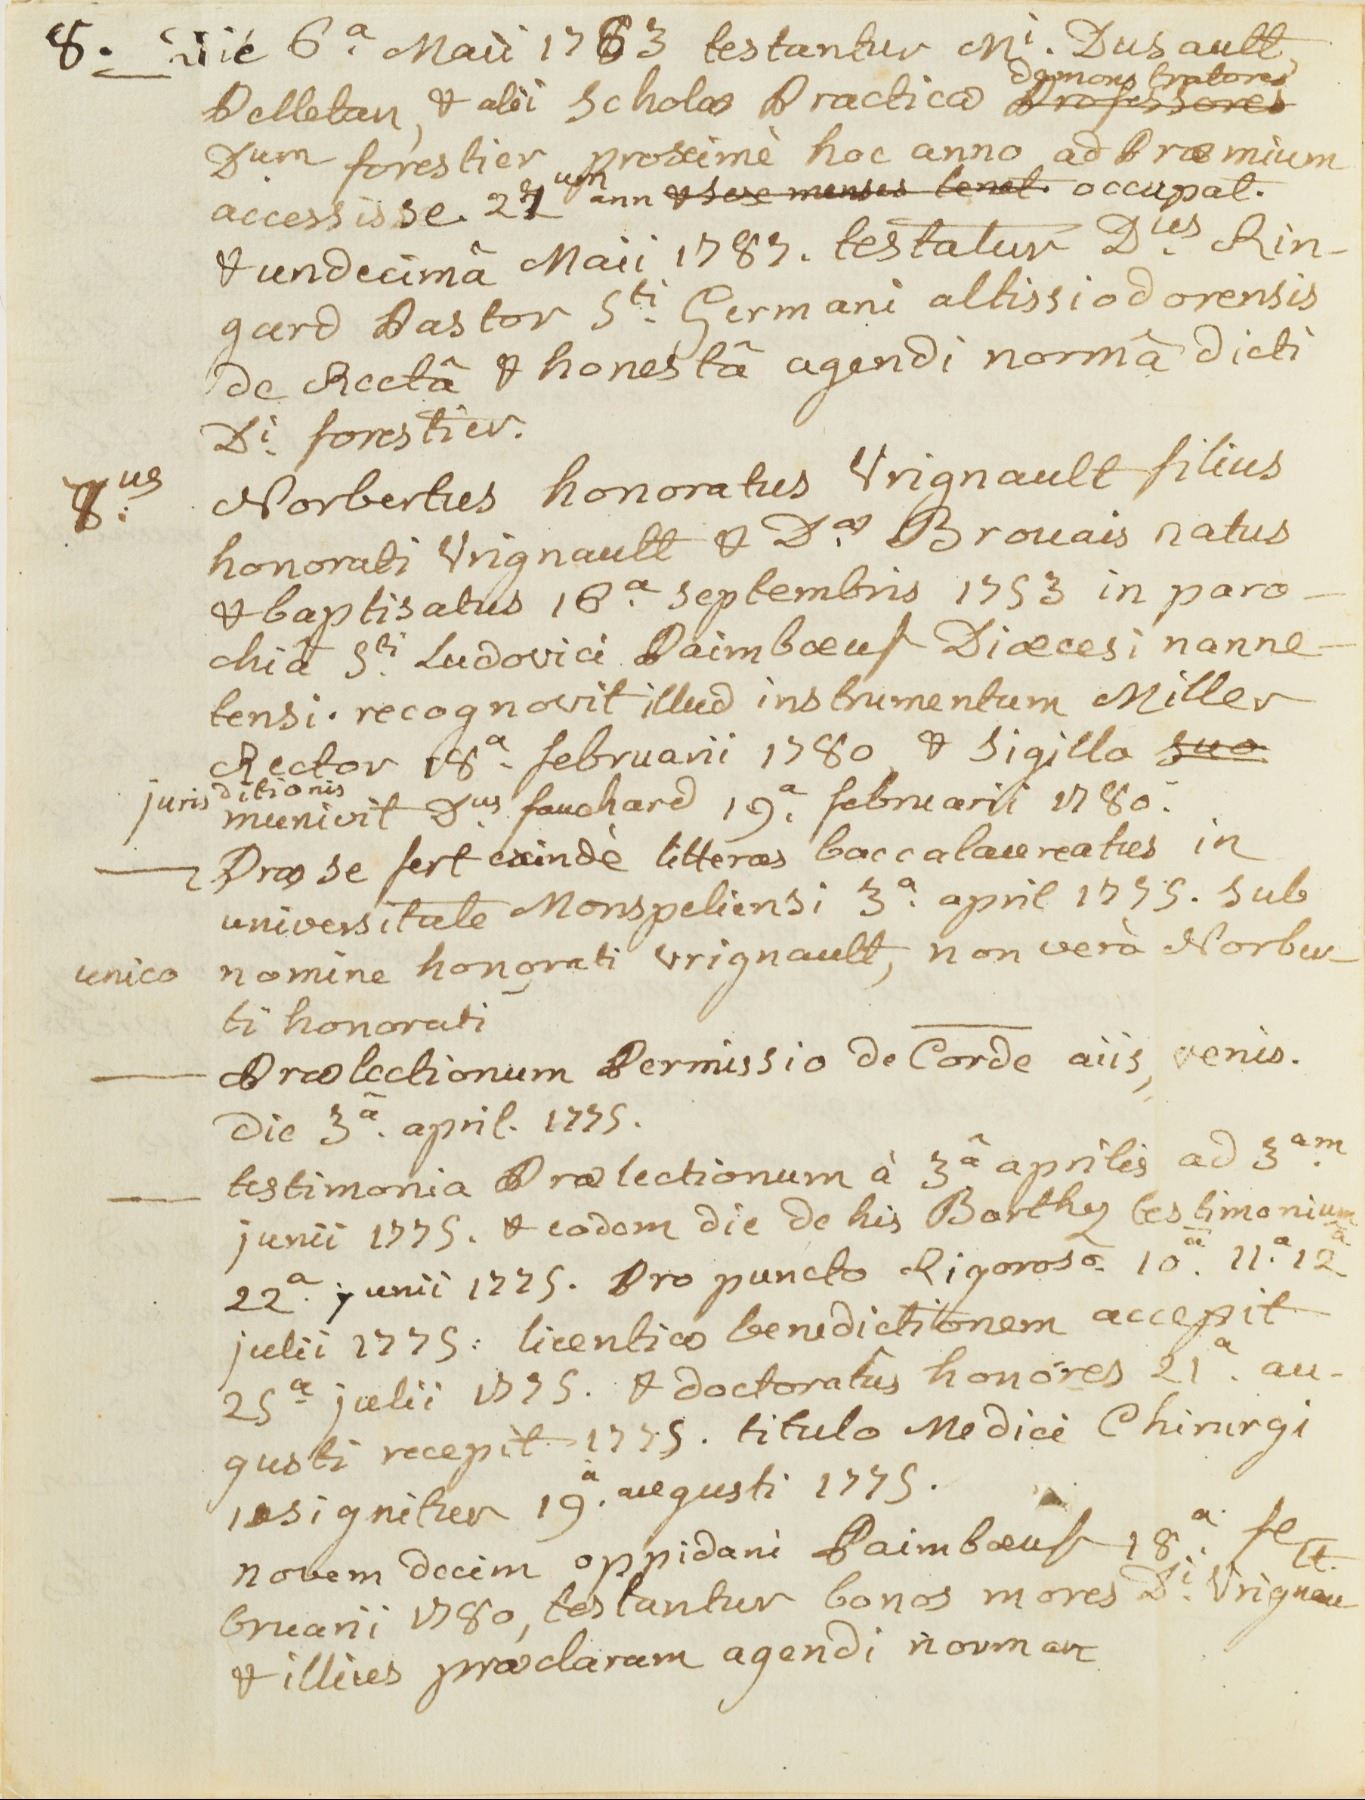 8. Die 6.a Maii 1783 testantur Mi. Dusault,
demonstratores
Pelletan, & alii scholæ Practicæ Professores
Dum. forestier proximè hoc anno ad Præmium
accessisse. 22um ann & sex menses tenet. occupat.
& undecimâ Maii 1787. testatur Dus. Rin-
gard Pastor Sti. Germani altissiodorensis
de Rectâ & honestâ agendi normâ dicti
Di. forestier.
8.us Norbertus honoratus Vrignault filius
honorati Vrignault & D.æ Brouais natus
& baptisatus 16.a septembris 1753 in paro-
chiâ Sti. Ludovici Paimbœuf Diœcesi nanne-
tensi. recognovit illud instrumentum Miller
Rector 18.a februarii 1780 & sigillo suo
jurisditionis
munivit Dus. fouchard 19.a februarii 1780.
— Præ se fert exindè litteras baccalaureatus in
universitate Monspeliensi 3.a april 1775. sub
unico nomine honorati vrignault, non verò Norber-
ti honorati
— Prælectionum Permissio de Corde aiis, venis.
die 3.a april. 1775.
— testimonia Prælectionum à 3.a aprilis ad 3.am
junii 1775. & eodem die de his Barthez testimonium
22.a junii 1775. Pro puncto Rigoroso 10.a 11.a 12.a
julii 1775: licentiæ benedictionem accepit
25.a julii 1775. & doctoratûs honores 21.a au-
gusti recepit 1775. titulo Medici Chirurgi
insignitur 19.a augusti 1775.
novem decim oppidani Paimbœuf 18.a fe
bruarii 1780, testantur bonos mores Di. Vrignault
& illius præclaram agendi normam